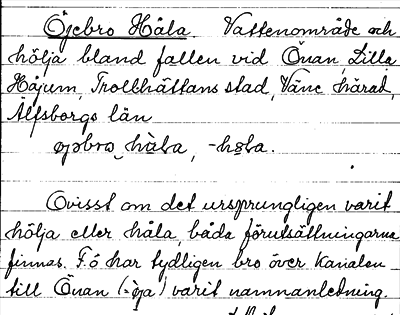 Öjebro Håla. Vattenområde och
hölja bland fallen vid Önan Lilla
Håjum, Trollhättans stad, Väne härad,
Älfsborgs län
øjəbro hå̀la, -høla.
Ovisst om det ursprungligen varit
hölja eller håla, båda förutsättningarna
finnas. F. ö har tydligen bro över kanalen
till Önan (-öja) varit namnanledning.